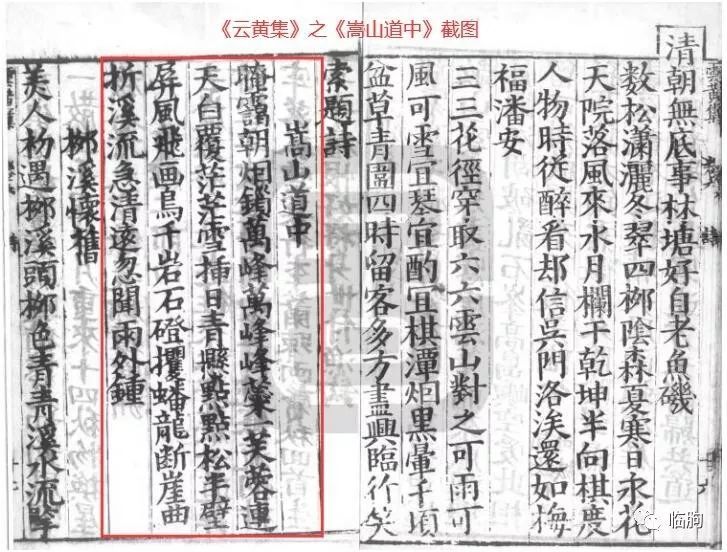 《云黄集》之《嵩山道中》截图
清朝無底事林塘好自老魚磯
数松瀟灑冬翠四栁陰森夏寒日永花
天院落風來水月欄干乾坤半向棋度
人物時從醉看却信吳門洛涘還如梅
福潘安
三三花徑穿取六六雲山對之可雨可
風可雪宜琴宜酌宜棋潭烟黑暈千頃
盆草青圍四時留客多方盡興臨行笑
索題詩
嵩山道中
晻靄朝烟鎖萬峰萬峰峰蘂一芙蓉連
天白覆茫茫雪揷日青縣點點松半壁
屏風飛画鳥千岩石磴攫蟠龍断崖曲
折溪流急清遠忽聞雨外鍾
栁溪懷舊
美人初遇栁溪頭栁色青青溪水流
临朐